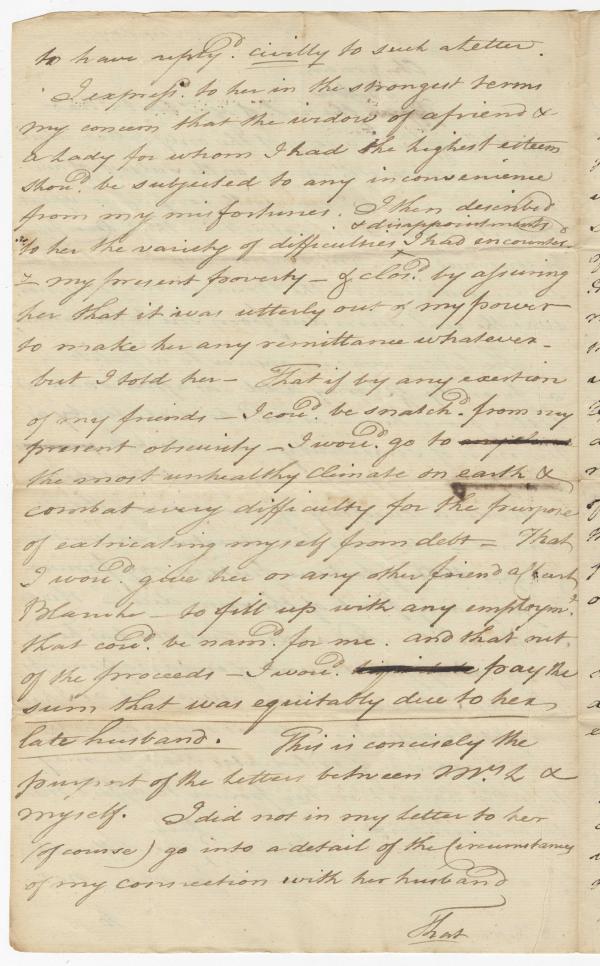 to have reply'd. civilly to such a letter.
I express'd. to her in the strongest terms
my concern that the widow of a friend &
a Lady for whom I had the highest esteem
shou'd. be subjected to any inconvenience
from my misfortunes. I then described
& disappointments
to her the variety of difficulties I had encounter'd
& my present poverty — & clos'd. by assuring
her that it was utterly out of my power
to make her any remittance whatever —
but I told her — That if by any exertion
of my friends — I cou'd be snatch'd. from my
present obscurity — I wou'd. go to
the most unhealthy Climate on earth &
combat every difficulty for the purpose
of extricating myself from debt — That
I wou'd. give her or any other friend a Cart
Blanche — to fill up with any employm't.
that cou'd. be nam'd. for me. and that out
of the proceeds — I wou'd. pay the
sum that was equitably due to her
late husband. This is concisely the
purport of the Letters between Mrs L &
myself. I did not in my letter to her
(of course) go into a detail of the Circumstances
of my connection with her husband
That